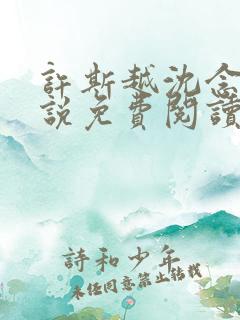 許斯越沈念
說免費閱讀
詩和少年
未經同意禁止轉載